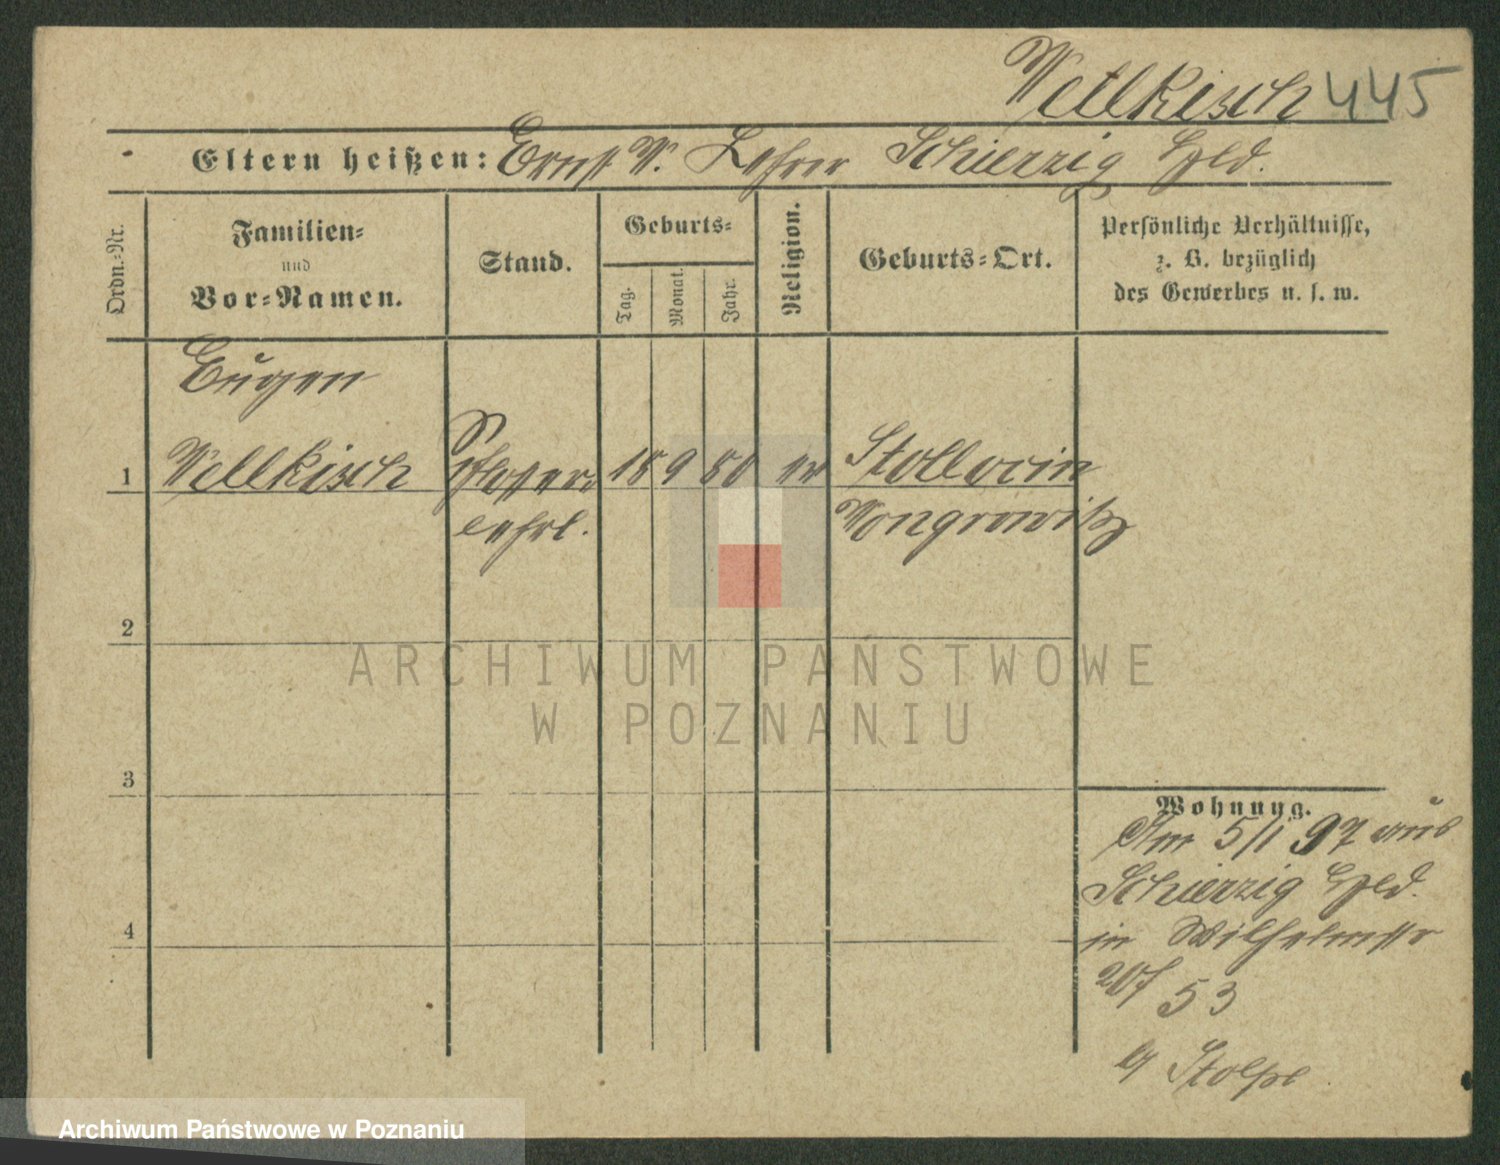 Wellkisch 445
Eltern heißen: Ernst W. Lehrer Schierzig Hld.
Ordn.-Nr.
Familien-
und
Vor-Namen.
Stand.
Geburts-
Tag.
Monat.
Jahr.
Religion.
Geburts-Ort.
Persönliche Verhältnisse,
z. B. bezüglich
des Gewerbes u. s. w.
Eugen
1 Wellkisch Schlosser 18 9 80 ev Stollocin
lehrl. Wongrowitz
2
3
4
Wohnung.
Am 5/1 97 aus
Schierzig Hld.
in Wilhelmstr
207 53
b/ Stolpe
ARCHIWUM PAŃSTWOWE
W POZNANIU
Archiwum Państwowe w Poznaniu